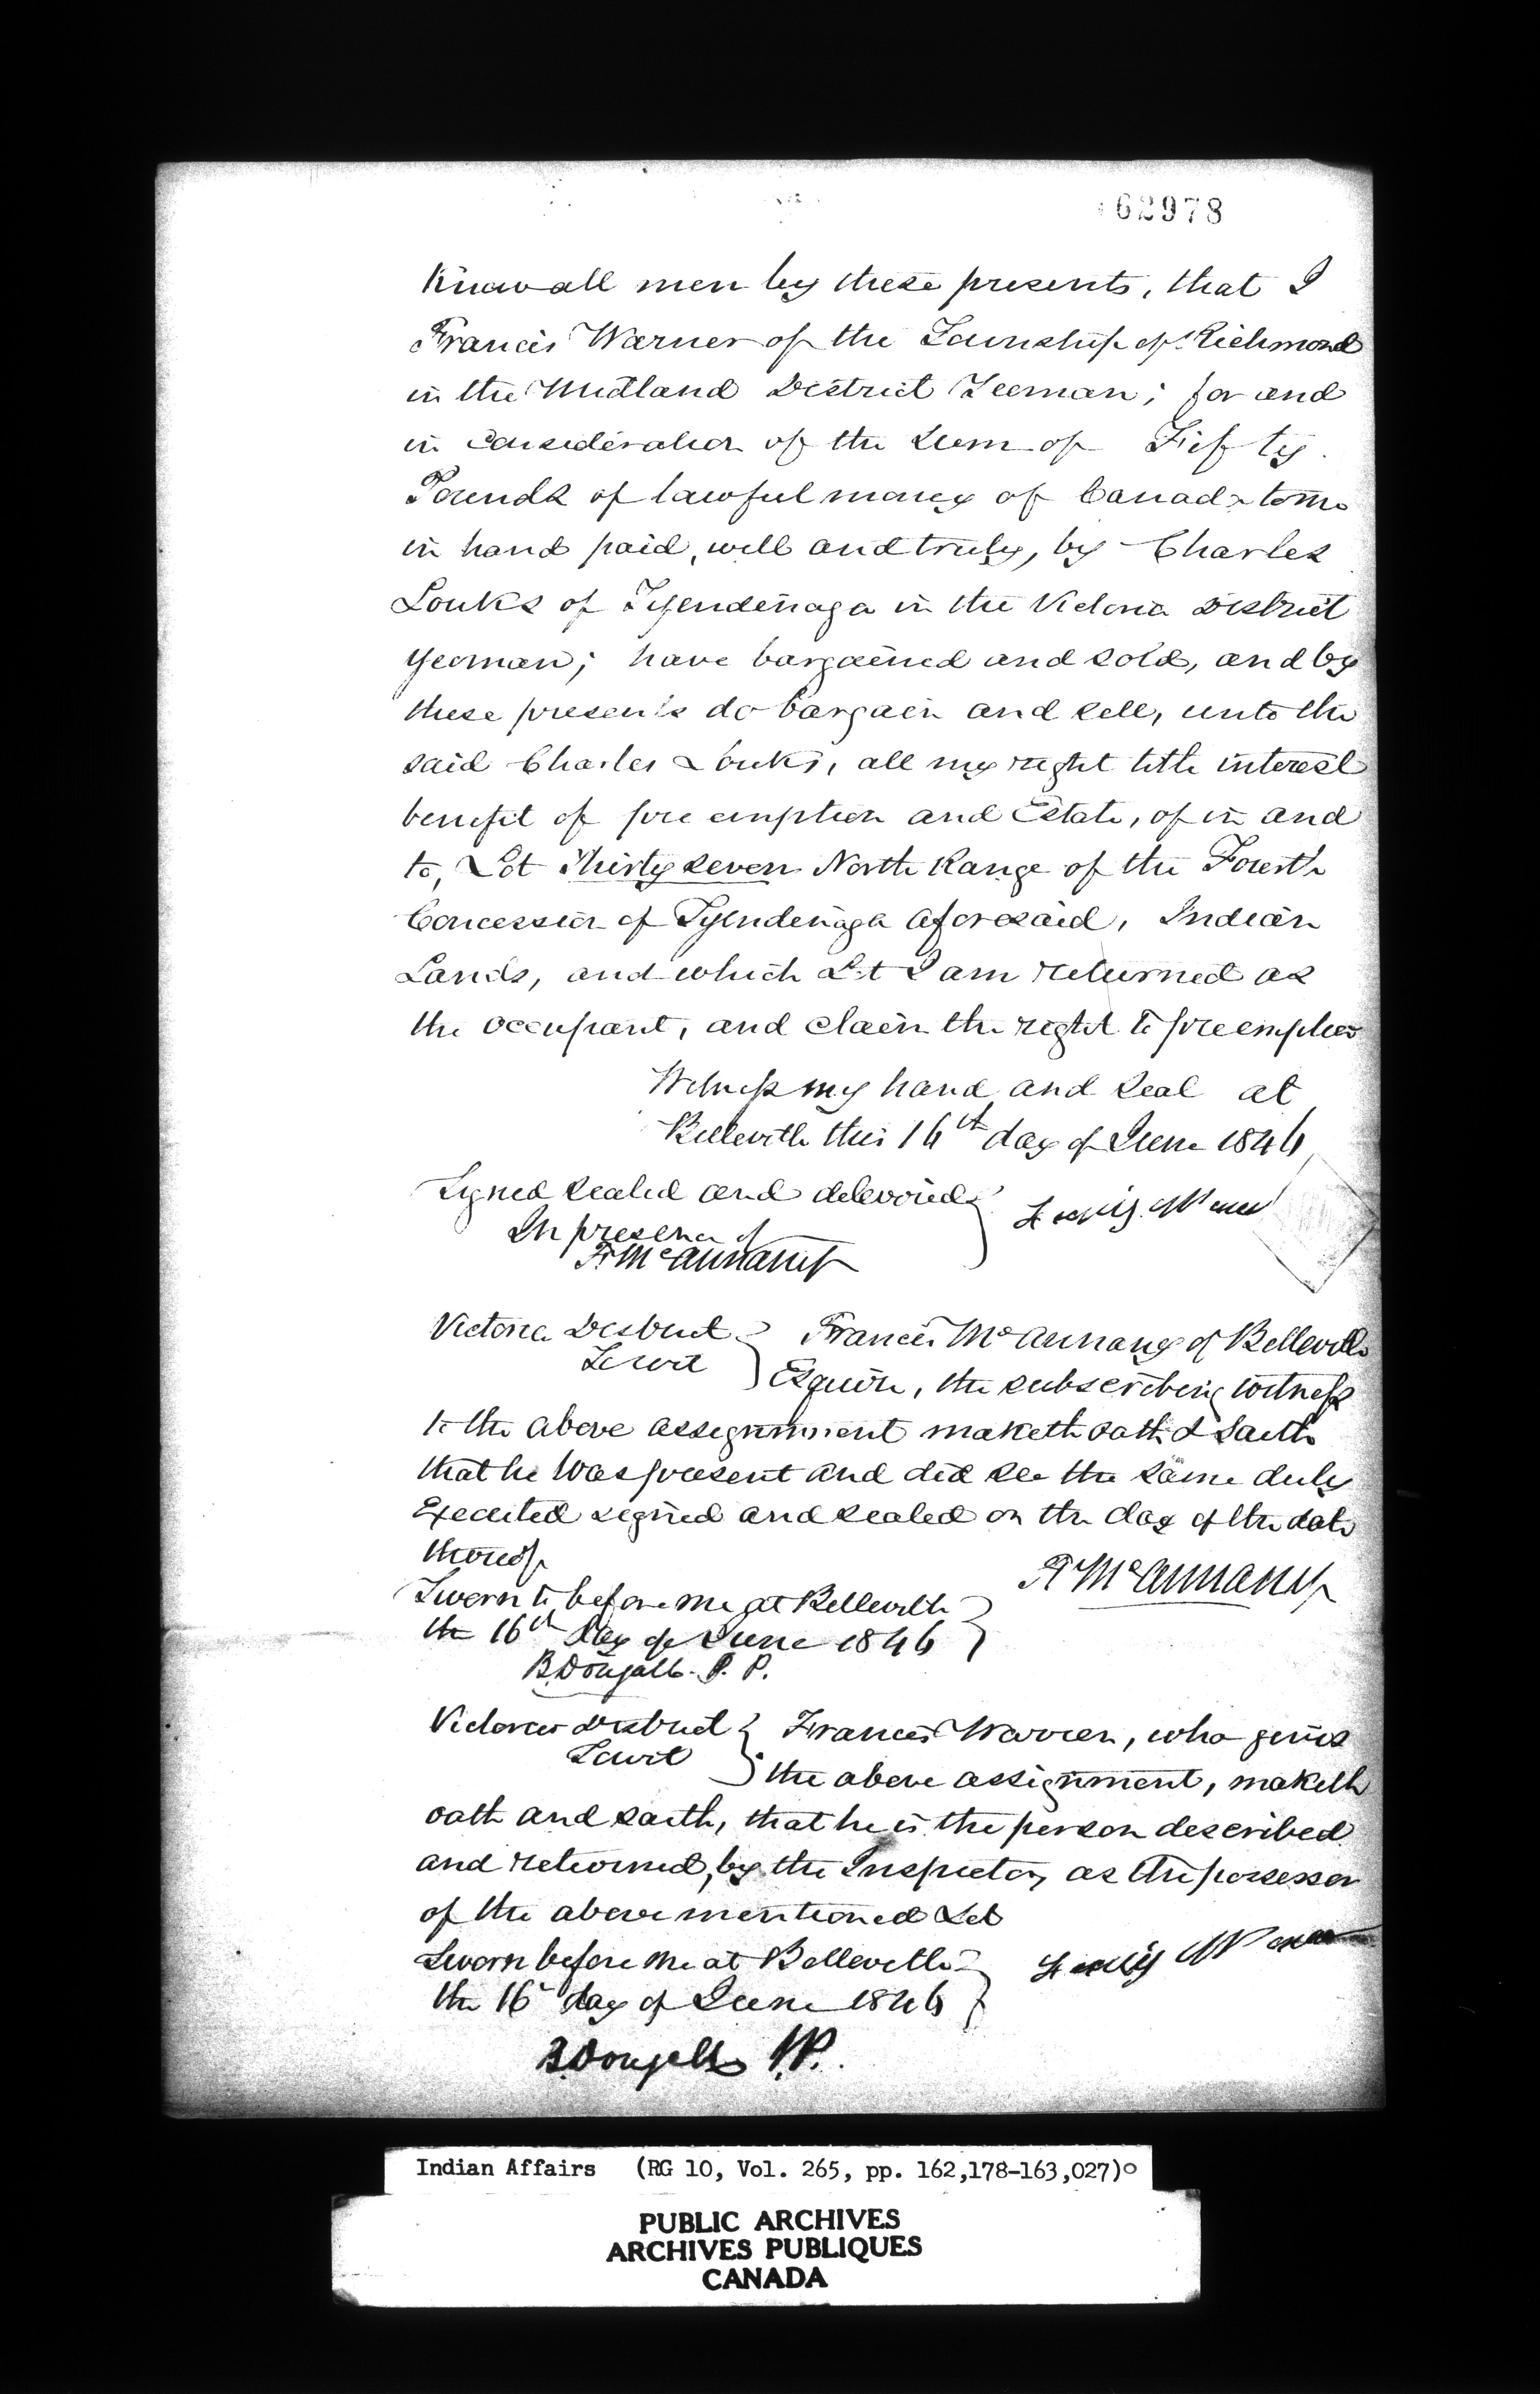 162978
Know all men by these presents, that I
Francis Warner of the Township of Richmond
in the Midland District Yeoman; for and
in consideration of the sum of Fifty
Pounds of lawful money of Canada to me
in hand paid, well and truly, by Charles
Louks of Tyendenaga in the Victoria District
yeoman; have bargained and sold, and by
these presents do bargain and sell, unto the
said Charles Louks, all my right title interest
benefit of pre emption and Estate, of in and
to, Lot Thirty seven North Range of the Fourth
Concession of Tyendenaga aforesaid, Indian
Lands, and which Lot I am returned as
the occupant, and claim the right to preemption
Witness my hand and seal at
Belleville this 16th day of June 1846
Signed sealed and delivered
In presence of
F McAnnany
Victoria District
To wit
Francis McAnnany of Belleville
Esquire, the subscribing witness
to the above assignment maketh oath & saith
that he was present and did see the same duly
Executed signed and sealed on the day of the date
thereof
F McAnnany
Sworn to before me at Belleville
the 16th day of June 1846
B. Dougall. J. P.
Victoria District
To wit
Francis Warner, who gives
the above assignment, maketh
oath and saith, that he is the person described
and returned, by the Inspector, as the possessor
of the above mentioned Lot
Sworn before me at Belleville
the 16th day of June 1846
B. Dougall J.P.
Indian Affairs (RG 10, Vol. 265, pp. 162,178-163,027)
PUBLIC ARCHIVES
ARCHIVES PUBLIQUES
CANADA